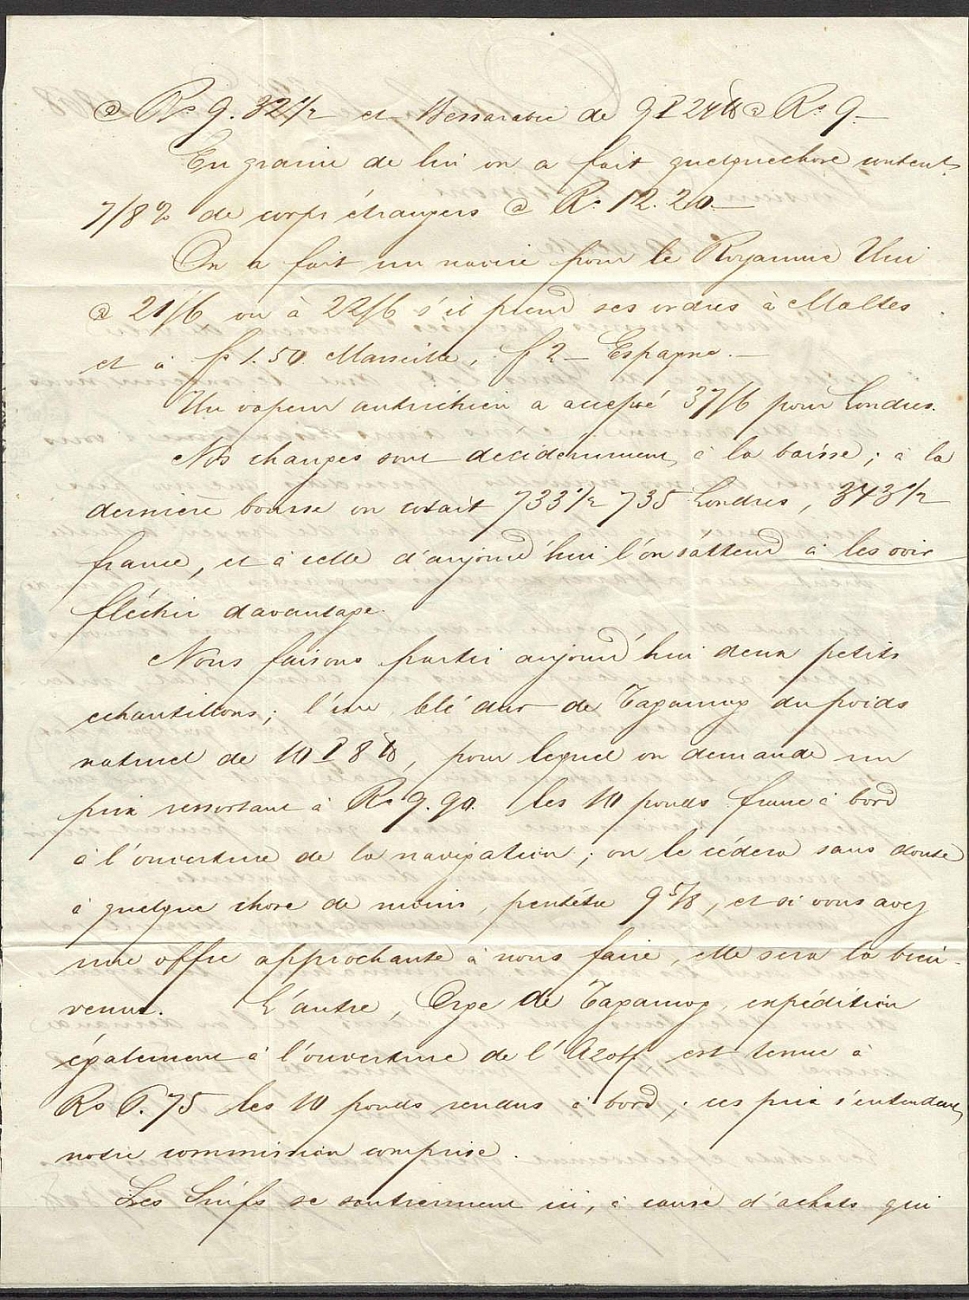 @ Rs 9.32 1/2 et Bessarabie de 9 P 24 lb @ Rs 9.—
En graine de lin on a fait quelquechose content.
7/8 % de corps étrangers @ Rs 12.20.—
On a fait un navire pour le Royaume Uni
@ 21/6 ou à 22/6 s'il prend ses ordres à Maltes
et à fs 1.50 Marseille, f 2 — Espagne.—
Un vapeur autrichien a accepté 37/6 pour Londres.
Nos changes sont décidemment à la baisse; à la
dernière bourse on cotait 733 1/2 735 Londres, 343 1/2
france, et à celle d'aujourd'hui l'on s'attend à les voir
fléchir davantage.
Nous faisons partir aujourd'hui deux petits
échantillons; l'un blé dur de Taganrog du poids
naturel de 10 P 8 lb, pour lequel on demande un
prix ressortant à Rs 9.90. les 10 pouds franc à bord
à l'ouverture de la navigation; on le cédera sans doute
à quelque chose de moins, peutêtre 9 5/8, et si vous avez
une offre approchante à nous faire, elle sera la bien-
venue. L'autre, Orge de Taganrog, expédition
également à l'ouverture de l'Azoff est tenue à
Rs 6.75 les 10 pouds rendus à bord; ces prix s'entendent
notre commission comprise.
Les Suifs se soutiennent ici, à cause d'achats qui